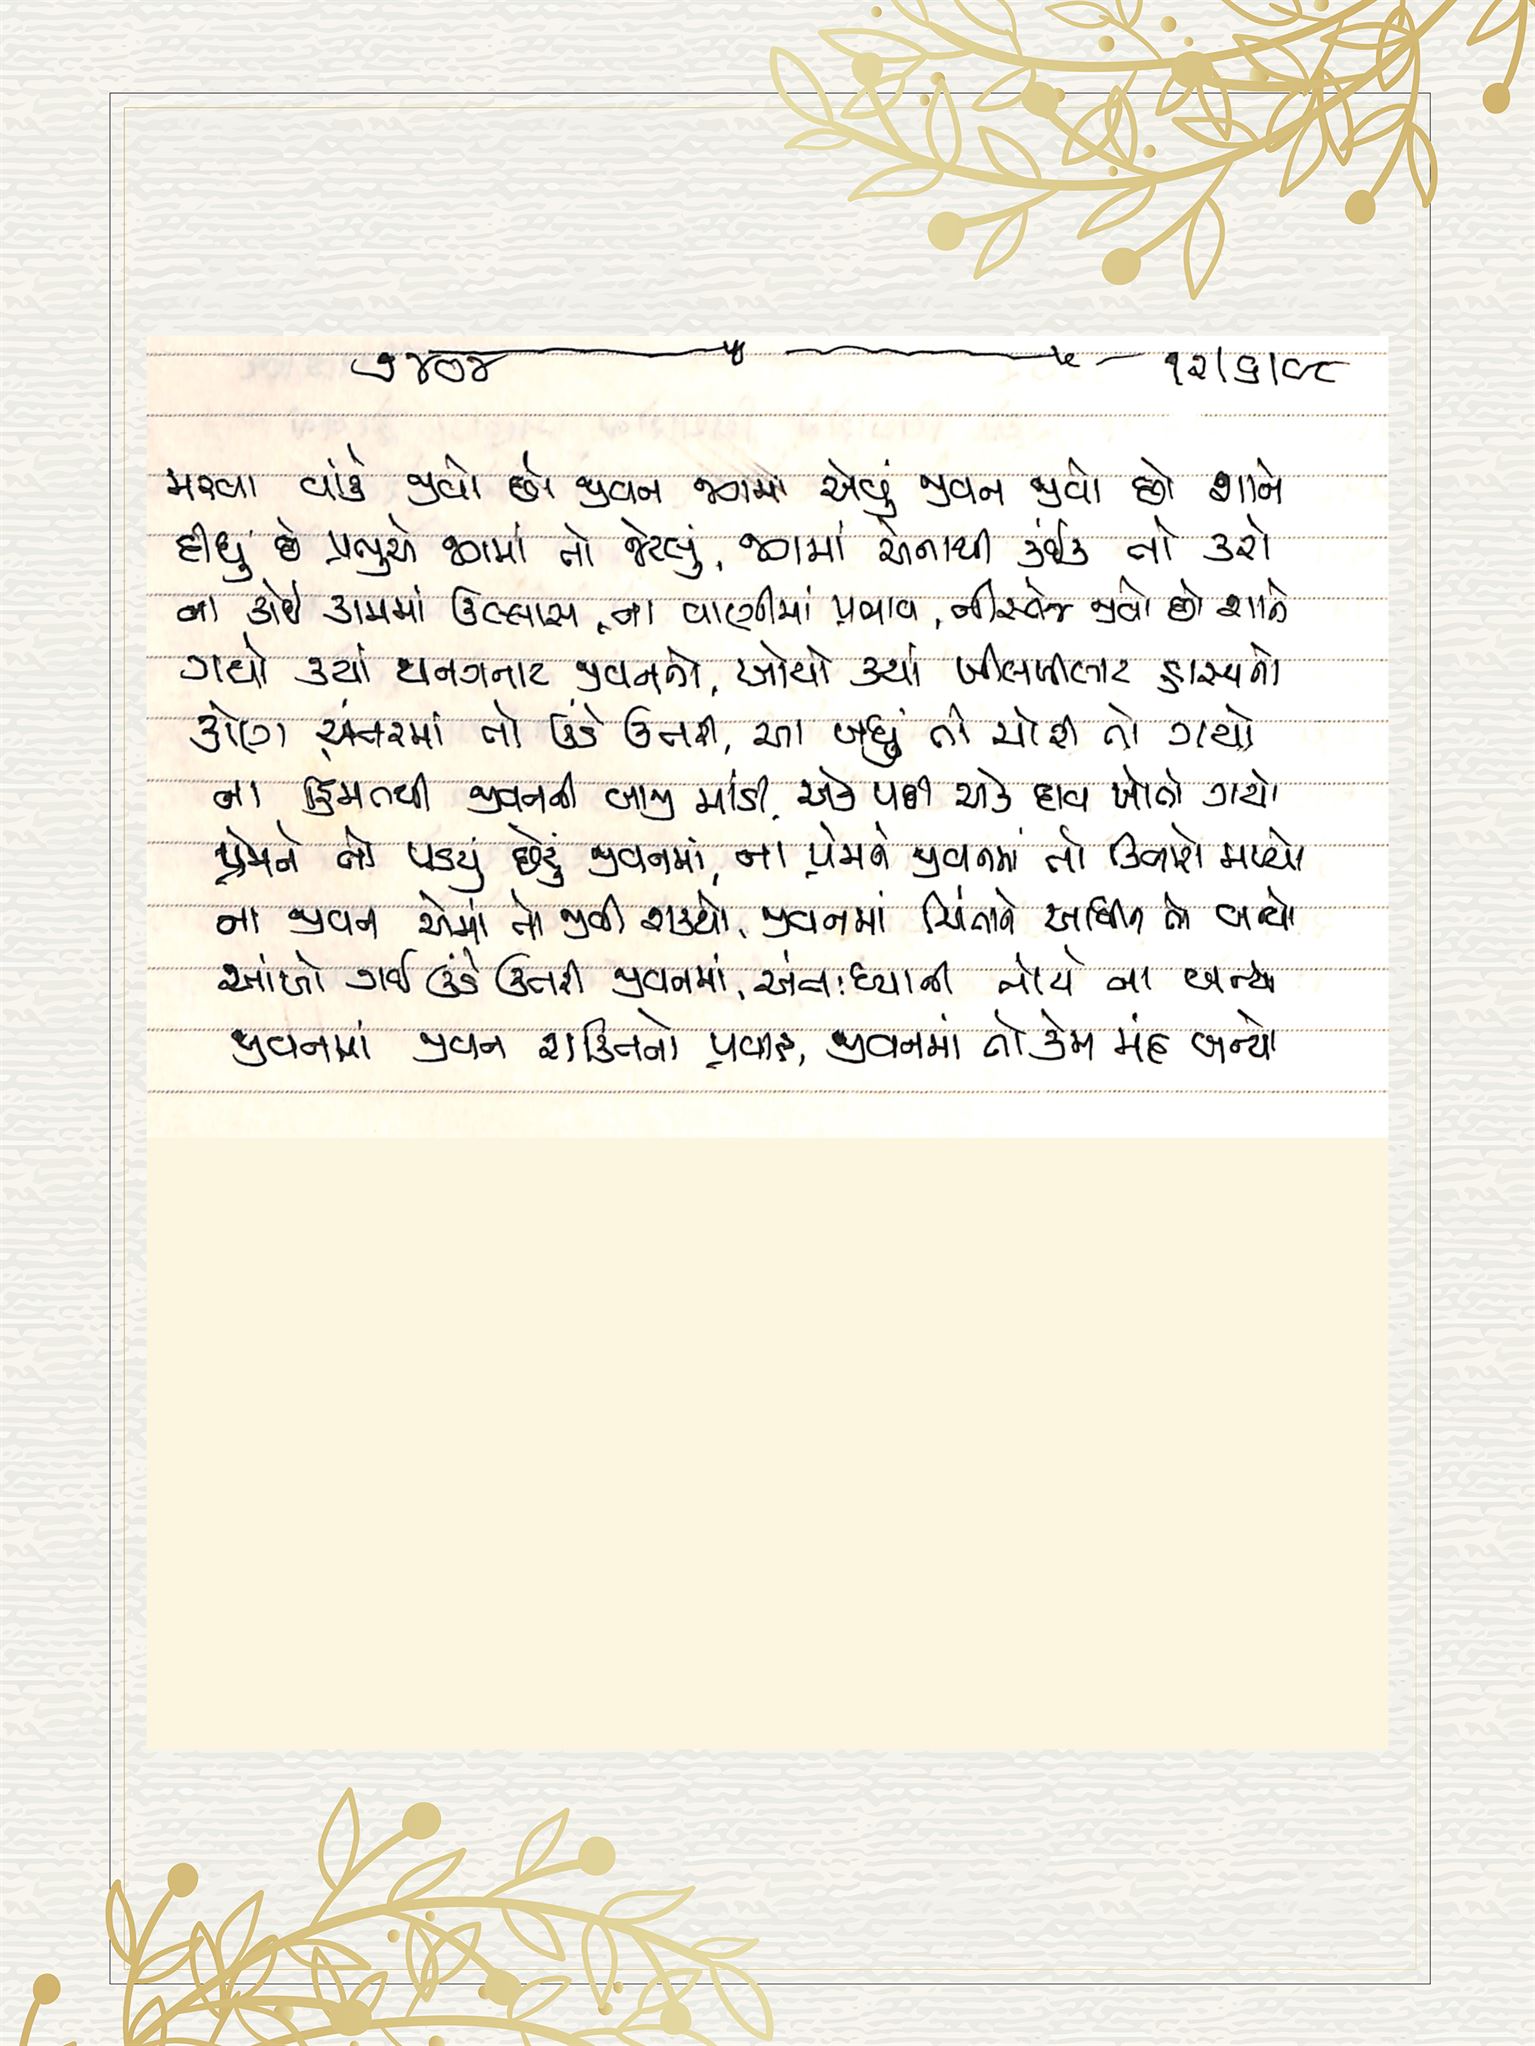 ૭૪૭૪ ૧૨|૬|૦૮
મરવા વાંકે જીવો છો જીવન જગમાં એવું જીવન જીવો છો શાને
દીધું છે પ્રભુએ જગમાં તો જેટલું, જગમાં એનાથી કંઈક તો કરો
ના કોઈ કામમાં ઉલ્લાસ, ના વાણીમાં પ્રભાવ, નીસ્તેજ જીવો છો શાને
ગયો ક્યાં થનગનાટ જીવનનો, ખોયો ક્યાં ખીલખીલાટ હાસ્યનો
કોણ અંતરમાં તો ઉંડે ઉતરી, આ બધું તો ચોરી તો ગયો
ના હિંમતથી જીવનની બાજી માંડી, એક પછી એક દાવ ખોતો ગયો
પ્રેમને તો પડયું છેટું જીવનમાં, ના પ્રેમને જીવનમાં તો કિનારો મળ્યો
ના જીવન એમાં તો જીવી શક્યો, જીવનમાં ચિંતાને આધીન તો બન્યો
આંખો ગઈ ઉંડે ઉતરી જીવનમાં, અંતઃધ્યાની તોયે ના બન્યો
જીવનમાં જીવન શક્તિનો પ્રવાહ, જીવનમાં તો કેમ મંદ બન્યો